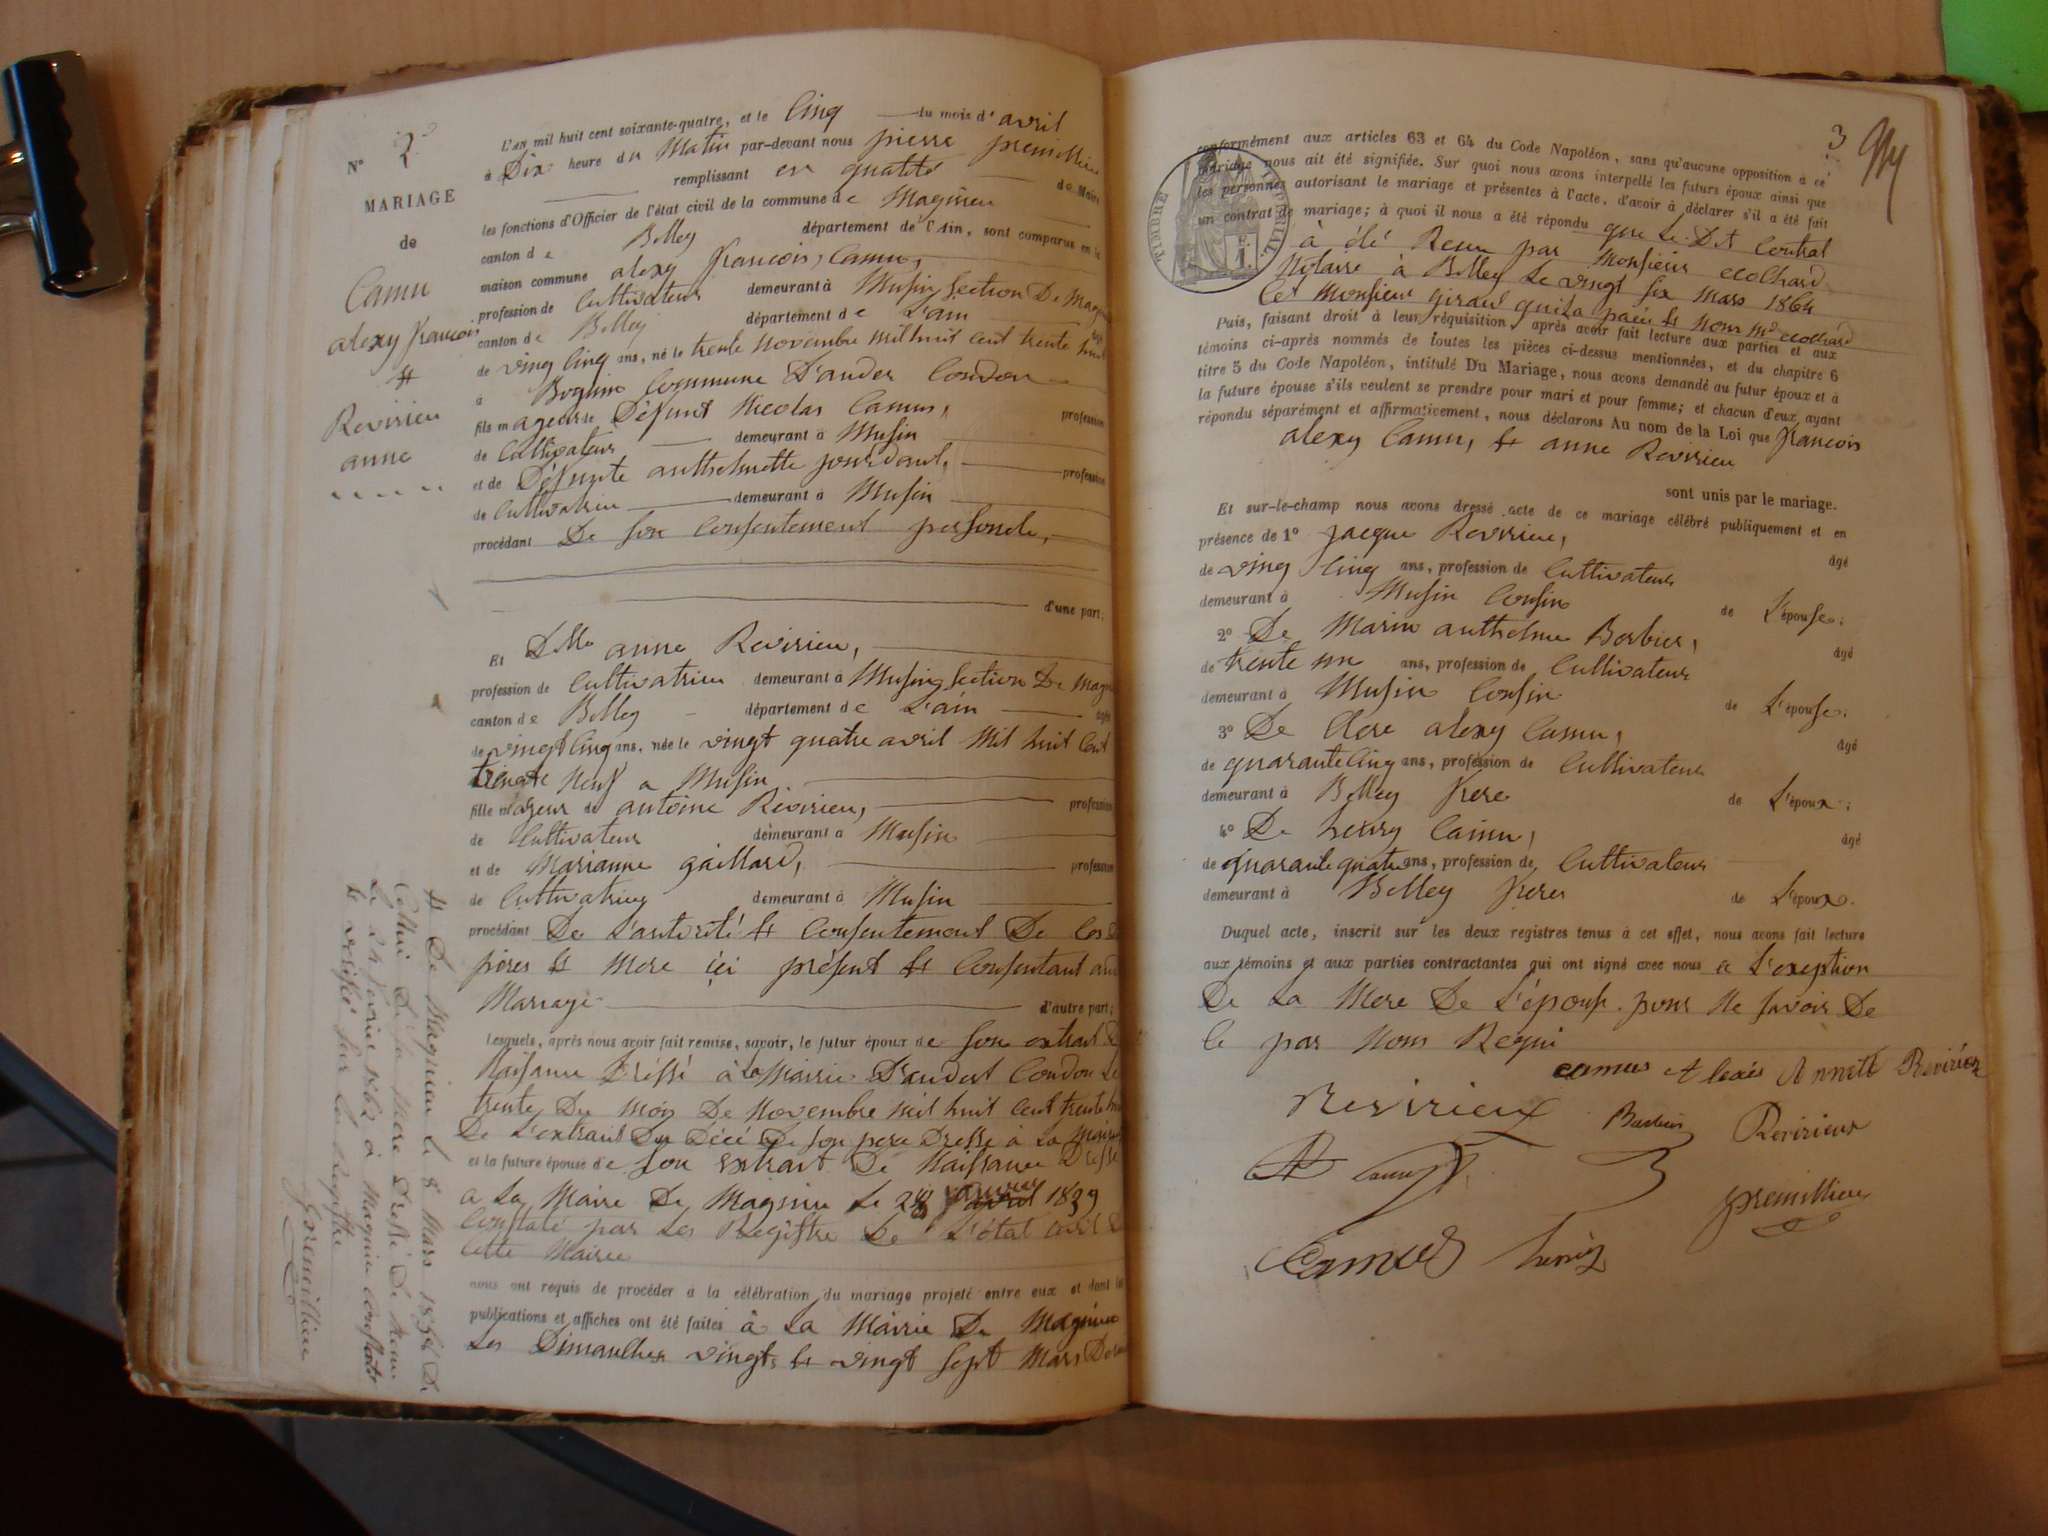 N° 2
MARIAGE
de
Camu
alexy francois
&
Revirieu
anne
L'an mil huit cent soixante-quatre, et le Cinq du mois d'avril
à Dix heure du Matin par-devant nous pierre premillieu
remplissant en qualité de Maire
les fonctions d'Officier de l'état civil de la commune de Magnieu
canton de Belley département de l'Ain, sont comparus en la
maison commune alexy francois, Camu,
profession de Cultivateur demeurant à Musin Section De Magnieu
canton de Belley département de L'ain âgé
de ving Cinq ans, né le trente Novembre mil huit cent trente huit
à Commune D'ander Condon
fils mageur de Défunt Nicolas Camus, profession
de Cultivateur demeurant à Musin
et de Défunte anthelmette jourdant, profession
de Cultivatrice demeurant à Musin
procédant De son Consentement personele,
d'une part;
Et Dlle anne Revirieu,
profession de Cultivatrice demeurant à Musin Section De Magn
canton de Belley département de L'ain âgée
de vingt Cinq ans, née le vingt quatre avril Mil huit Cent
trente Neuf a Musin
fille mageur de antoine Revirieu, profession
de Cultivateur demeurant à Musin
et de Marianne gaillard, profession
de Cultivatrice demeurant à Musin
procédant De L'autorité & Consentement De Ces
peres & Mere ici présent & Consentant au
Mariage d'autre part;
Lesquels, après nous avoir fait remise, savoir, le futur époux de son extrait de
Naissance Dréssé à La Mairie D'andert Condon Le
trente Du Mois De Novembre mil huit Cent trente huit
De L'extrait Du Décé De son pere Dressé à La Mairie
et la future épouse de son extrait De Naissance Dressé
a La Mairie De Magnieu Le 28 janvier 1839
Constaté par Les Registre De L'état Civil De
Cette Mairie
nous ont requis de procéder à la célébration du mariage projeté entre eux et dont les
publications et affiches ont été faites à La Mairie De Magnieu
Les Dimanches vingt & vingt Sept Mars Dernier
& De Magnieu le 8 Mars 1854 De
Celui De la Mere Dressé De Meme
Le 24 fevrier 1862 à Magnieu constaté
& vérifié sur les registre
premillieu
3
conformément aux articles 63 et 64 du Code Napoléon, sans qu'aucune opposition à ce
mariage nous ait été signifiée. Sur quoi nous avons interpellé les futurs époux ainsi que
les personnes autorisant le mariage et présentes à l'acte, d'avoir à déclarer s'il a été fait
un contrat de mariage; à quoi il nous a été répondu que Le Dit Contrat
TIMBRE IMPERIAL
à été Recu par Monsieur ecolhard
Notaire à Belley Le vingt six Mars 1864
Puis, faisant droit à leur réquisition, après avoir fait lecture aux parties et aux
témoins ci-après nommés de toutes les pièces ci-dessus mentionnées, et du chapitre 6
titre 5 du Code Napoléon, intitulé Du Mariage, nous avons demandé au futur époux et à
la future épouse s'ils veulent se prendre pour mari et pour femme; et chacun d'eux, ayant
répondu séparément et affirmativement, nous déclarons Au nom de la Loi que francois
alexy Camu, & anne Revirieu
sont unis par le mariage.
Et sur-le-champ nous avons dressé acte de ce mariage célébré publiquement et en
présence de 1° jacque Revirieu, âgé
de ving Cinq ans, profession de Cultivateur
demeurant à Musin Cousin de L'épouse;
2° De Marin anthelme Berbier, âgé
de trente un ans, profession de Cultivateur
demeurant à Musin Cousin de L'épouse;
3° De alexy Camu, âgé
de quarante Cinq ans, profession de Cultivateur
demeurant à Belley frere de L'époux;
4° De henry Camu, âgé
de quarante quatre ans, profession de Cultivateur
demeurant à Belley frere de L'époux.
Duquel acte, inscrit sur les deux registres tenus à cet effet, nous avons fait lecture
aux témoins et aux parties contractantes qui ont signé avec nous a L'exeption
De La Mere De L'épouse pour Ne savoir De
Ce par Nous Requi
camus Alexis Annette Revirieux
Revirieux Revirieux
premillieu
Camus henri